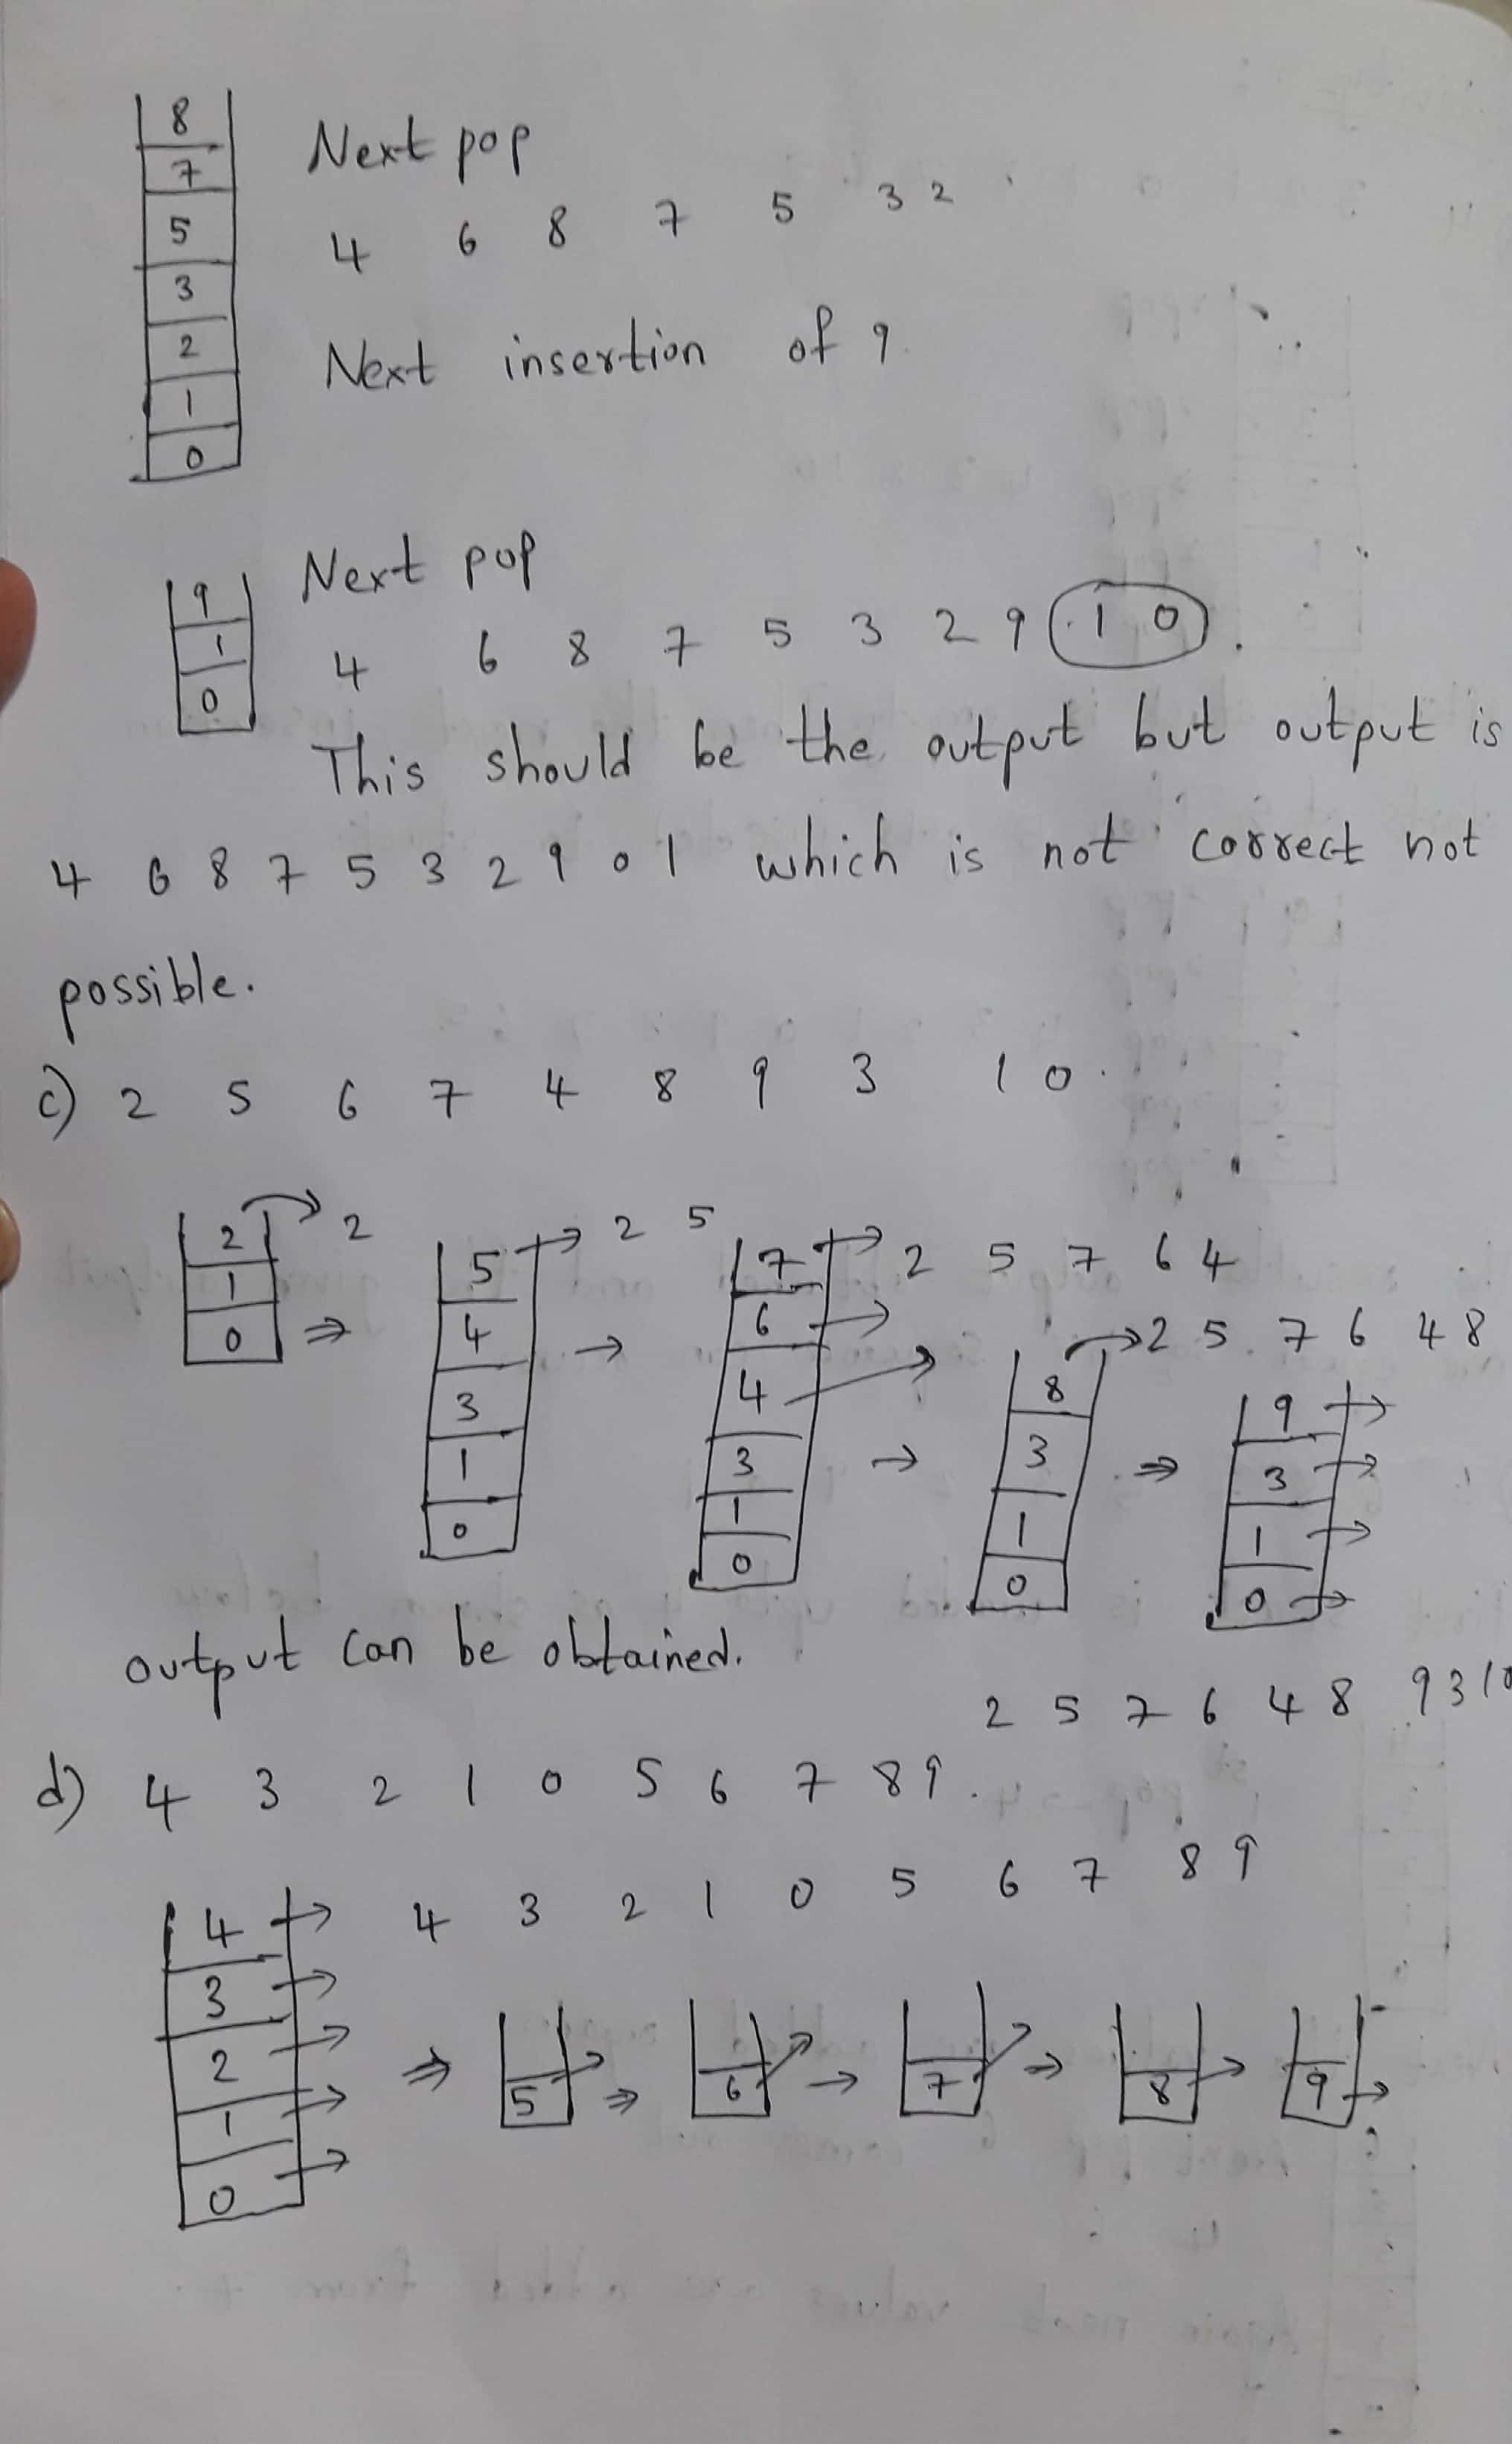 8
7
5
3
2
1
0
Next pop
4 6 8 7 5 3 2
Next insertion of 9.
9
1
0
Next pop
4 6 8 7 5 3 2 9 1 0.
This should be the output but output is
4 6 8 7 5 3 2 9 0 1 which is not correct not
possible.
c) 2 5 6 7 4 8 9 3 1 0.
2 → 2
1
0 ⇒
5 → 2 5
4
3
1
0
→
7 → 2 5 7 6 4
6 →
4 →
3
1
0
→
8 → 2 5 7 6 4 8
3
1
0
⇒
9 →
3 →
1 →
0 →
output can be obtained.
2 5 7 6 4 8 9 3 1 0
d) 4 3 2 1 0 5 6 7 8 9.
4 3 2 1 0 5 6 7 8 9
4 →
3 →
2 →
1 →
0 →
⇒ 5 → ⇒ 6 → → 7 → ⇒ 8 → 9 →